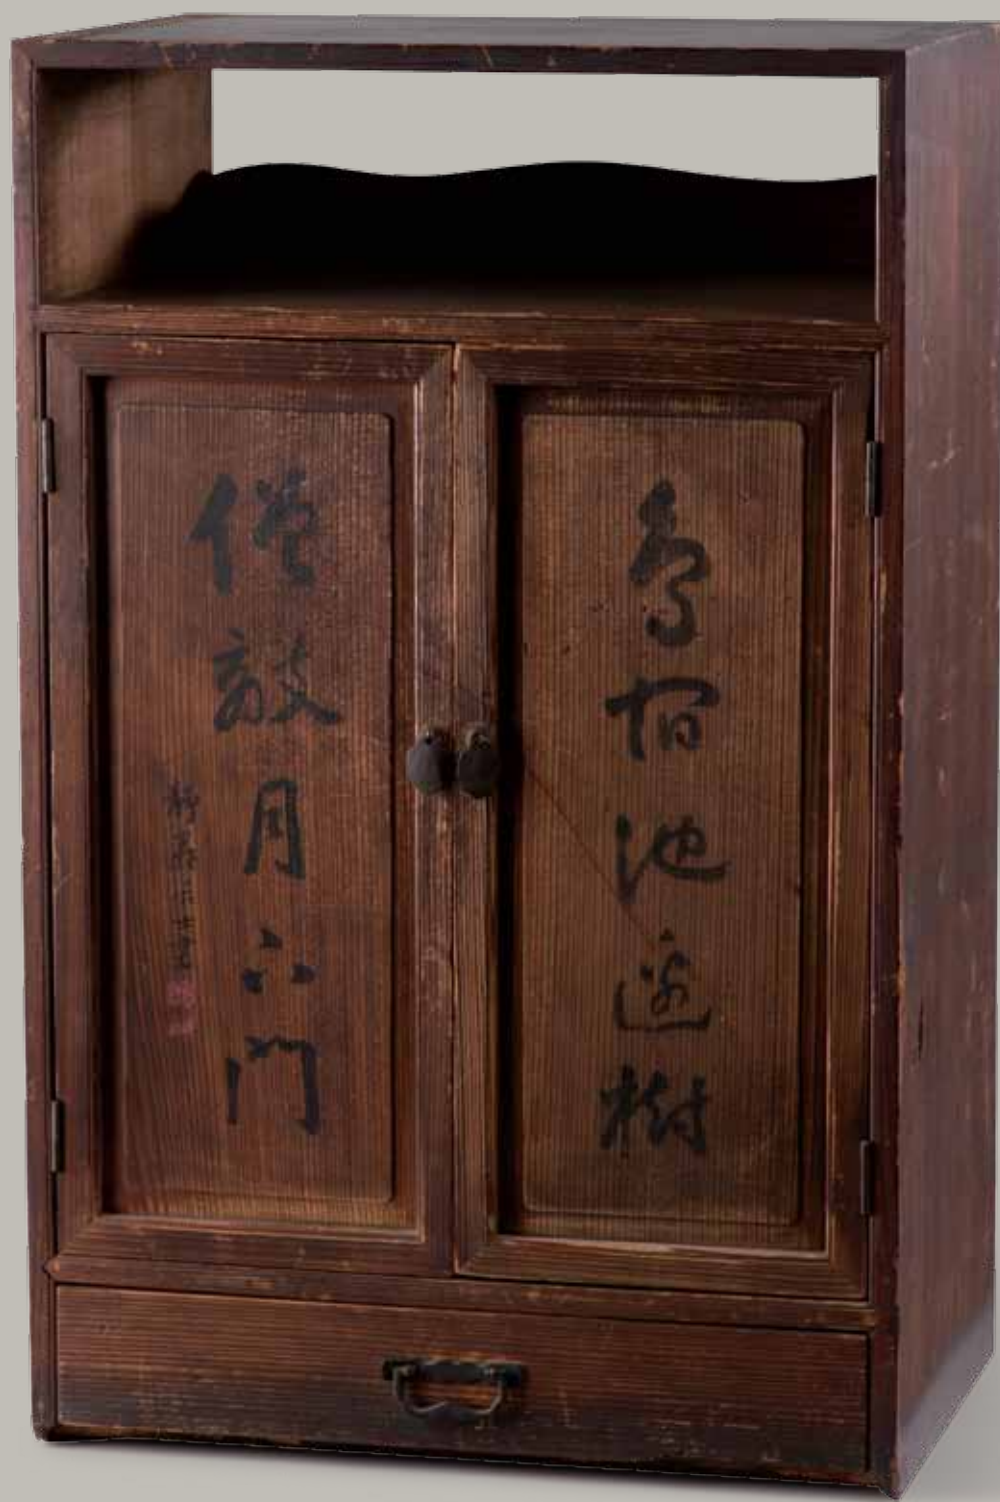 鳥宿池邊樹
僧敲月下門